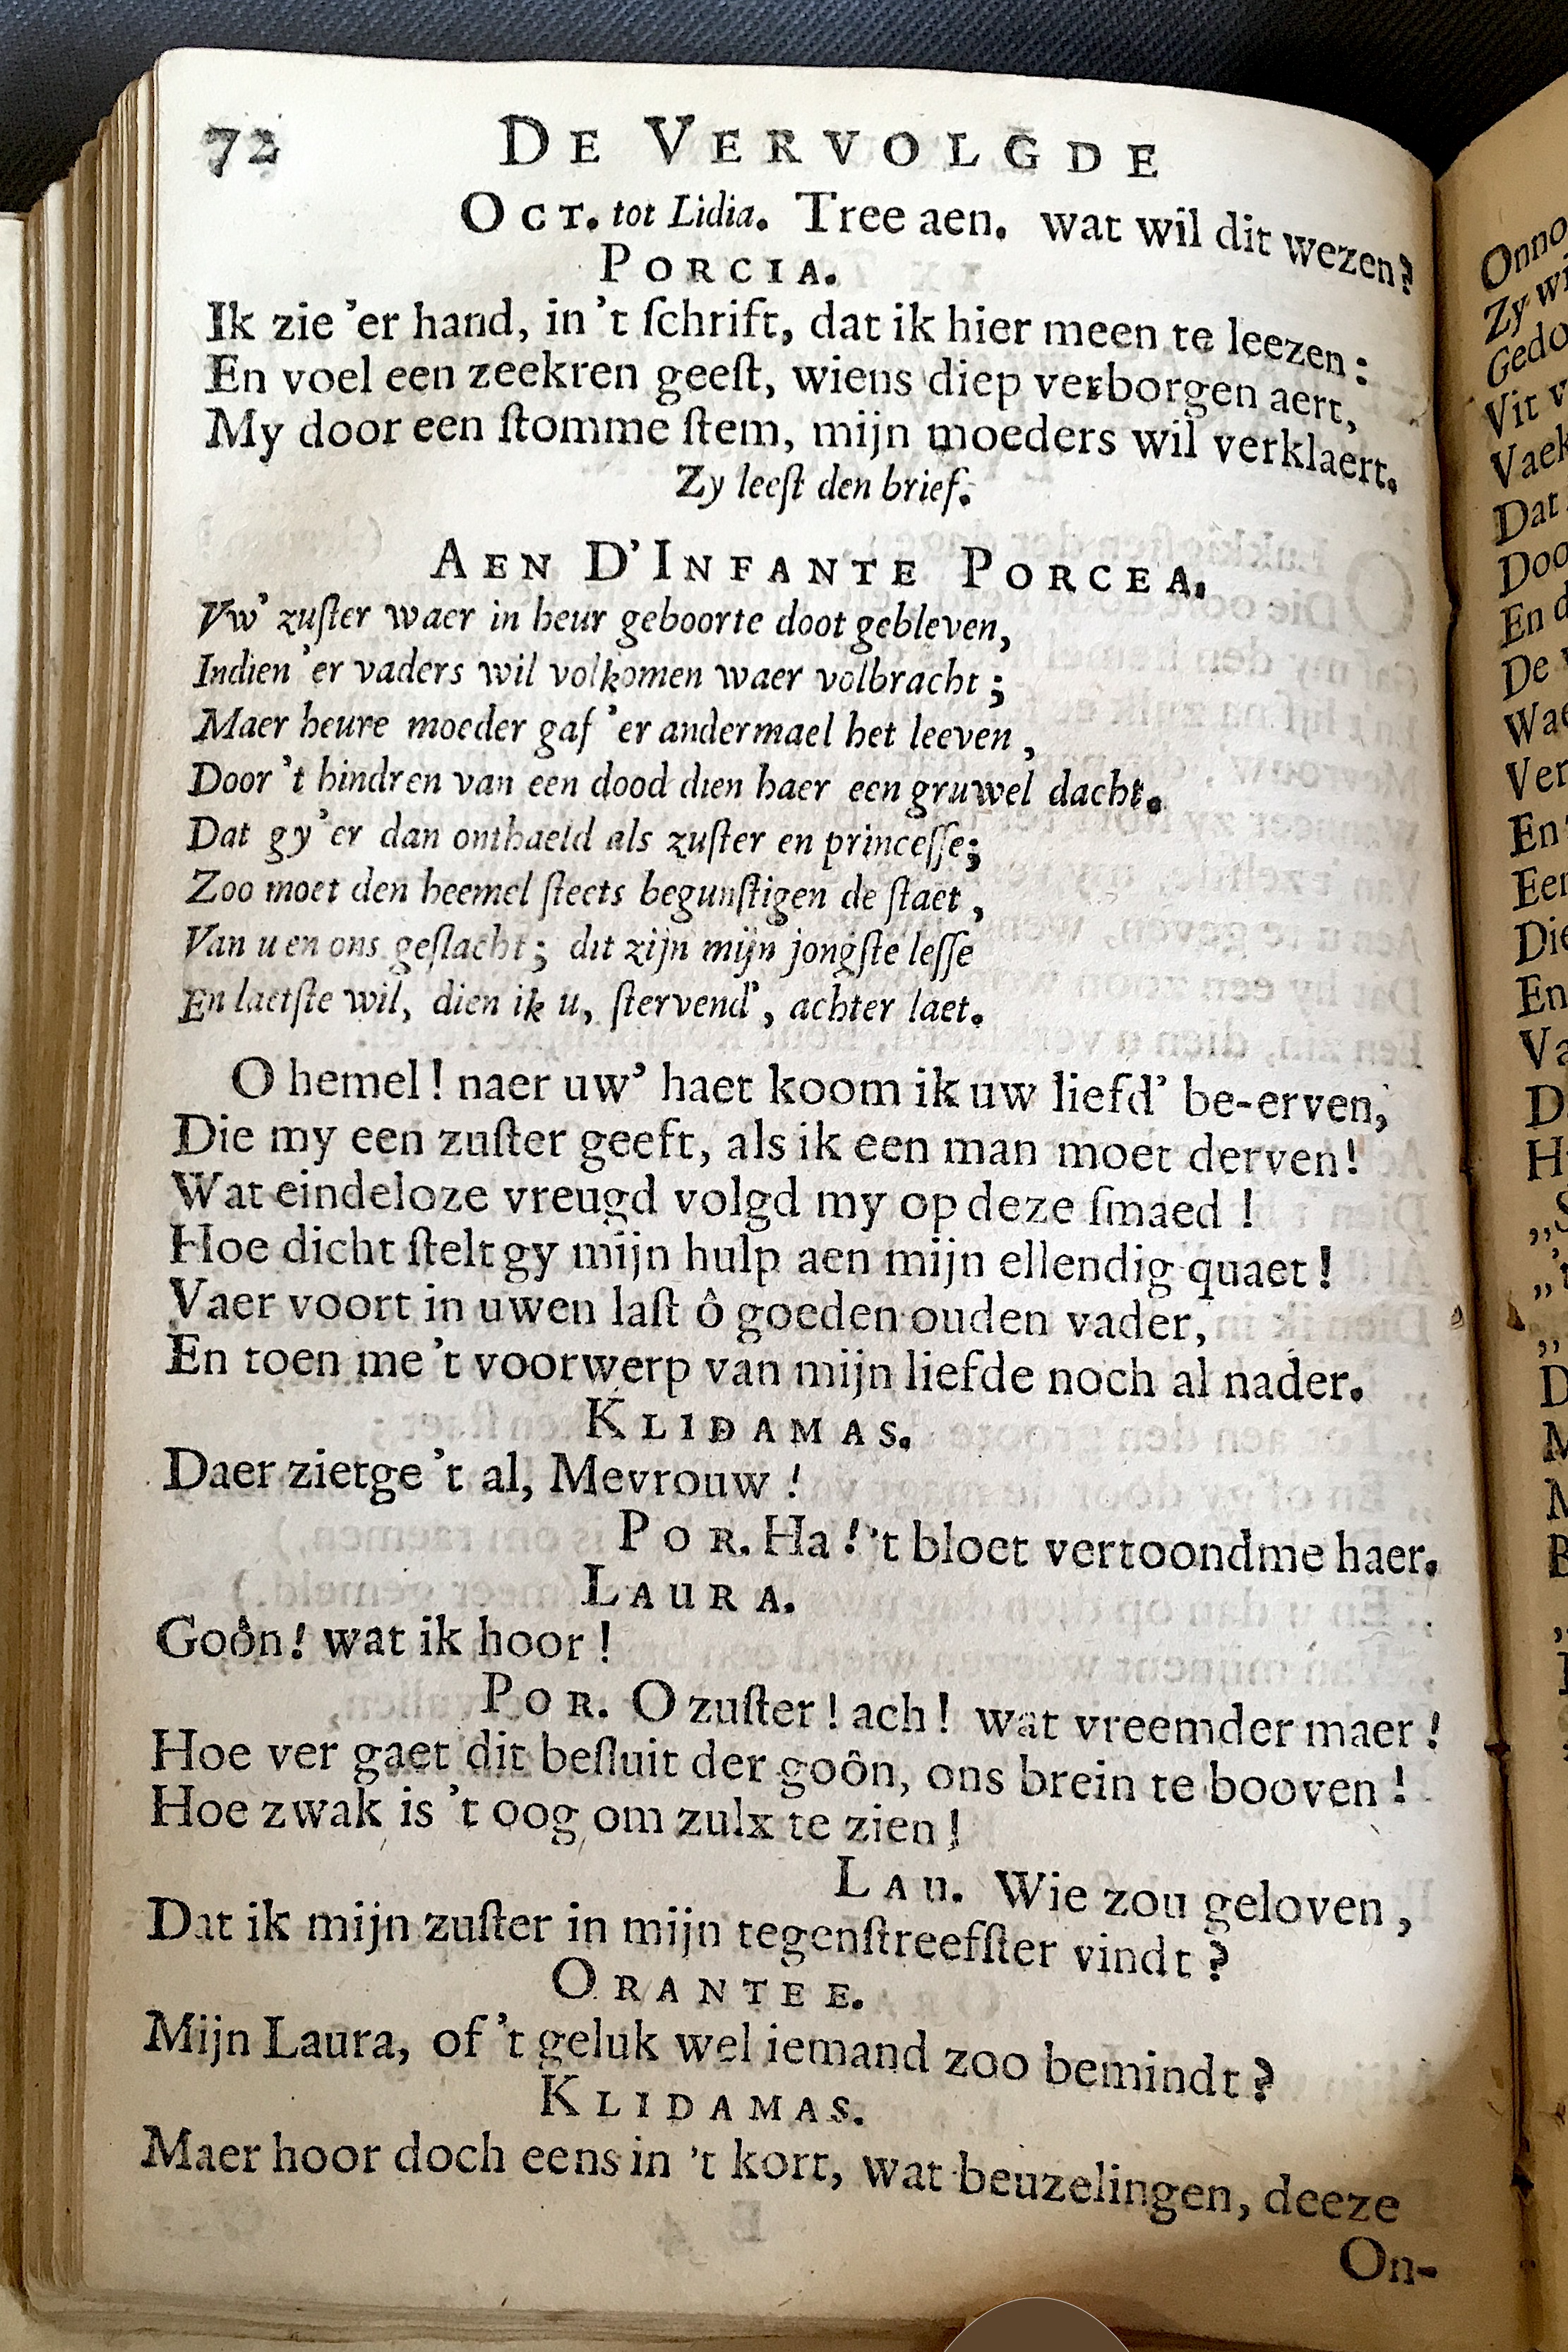 72 DE VERVOLGDE
OCT. tot Lidia. Tree aen. wat wil dit wezen?
PORCIA.
Ik zie 'er hand, in 't ſchrift, dat ik hier meen te leezen:
En voel een zeekren geeſt, wiens diep verborgen aert,
My door een ſtomme ſtem, mijn moeders wil verklaert.
Zy leeſt den brief.
AEN D'INFANTE PORCEA.
Vw' zuſter waer in heur geboorte doot gebleven,
Indien 'er vaders wil volkomen waer volbracht;
Maer heure moeder gaf 'er andermael het leeven,
Door 't hindren van een dood dien haer een gruwel dacht.
Dat gy 'er dan onthaeld als zuſter en princeſſe;
Zoo moet den heemel ſteets begunſtigen de ſtaet,
Van u en ons geſlacht; dit zijn mijn jongſte leſſe
En laetſte wil, dien ik u, ſtervend', achter laet.
O hemel! naer uw' haet koom ik uw liefd' be-erven,
Die my een zuſter geeft, als ik een man moet derven!
Wat eindeloze vreugd volgd my op deze ſmaed!
Hoe dicht ſtelt gy mijn hulp aen mijn ellendig quaet!
Vaer voort in uwen laſt ô goeden ouden vader,
En toen me 't voorwerp van mijn liefde noch al nader.
KLIDAMAS.
Daer zietge 't al, Mevrouw!
POR. Ha! 't bloet vertoondme haer.
LAURA.
Goôn! wat ik hoor!
POR. O zuſter! ach! wat vreemder maer!
Hoe ver gaet dit beſluit der goôn, ons brein te booven!
Hoe zwak is 't oog om zulx te zien!
LAU. Wie zou geloven,
Dat ik mijn zuſter in mijn tegenſtreefſter vindt?
ORANTEE.
Mijn Laura, of 't geluk wel iemand zoo bemindt?
KLIDAMAS.
Maer hoor doch eens in 't kort, wat beuzelingen, deeze
On-